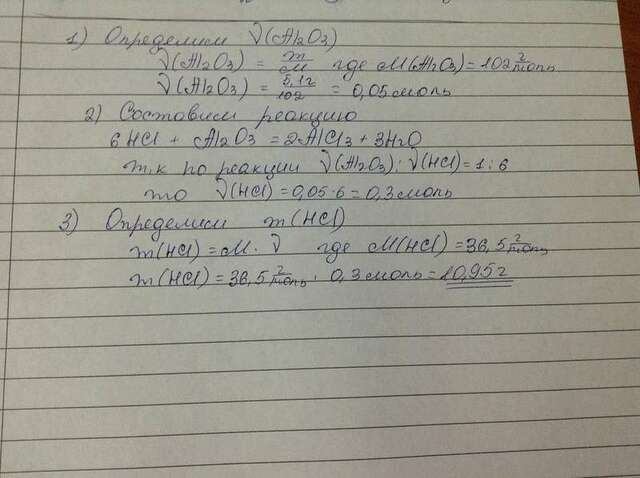 1) Определим ν(Al2O3)
ν(Al2O3) = m/M где M(Al2O3) = 102 г/моль
ν(Al2O3) = 5,1г/102 = 0,05 моль
2) Составим реакцию
6HCl + Al2O3 = 2AlCl3 + 3H2O
т.к по реакции ν(Al2O3) : ν(HCl) = 1 : 6
то ν(HCl) = 0,05 · 6 = 0,3 моль
3) Определим m(HCl)
m(HCl) = M · ν где M(HCl) = 36,5 г/моль
m(HCl) = 36,5 г/моль · 0,3 моль = 10,95 г